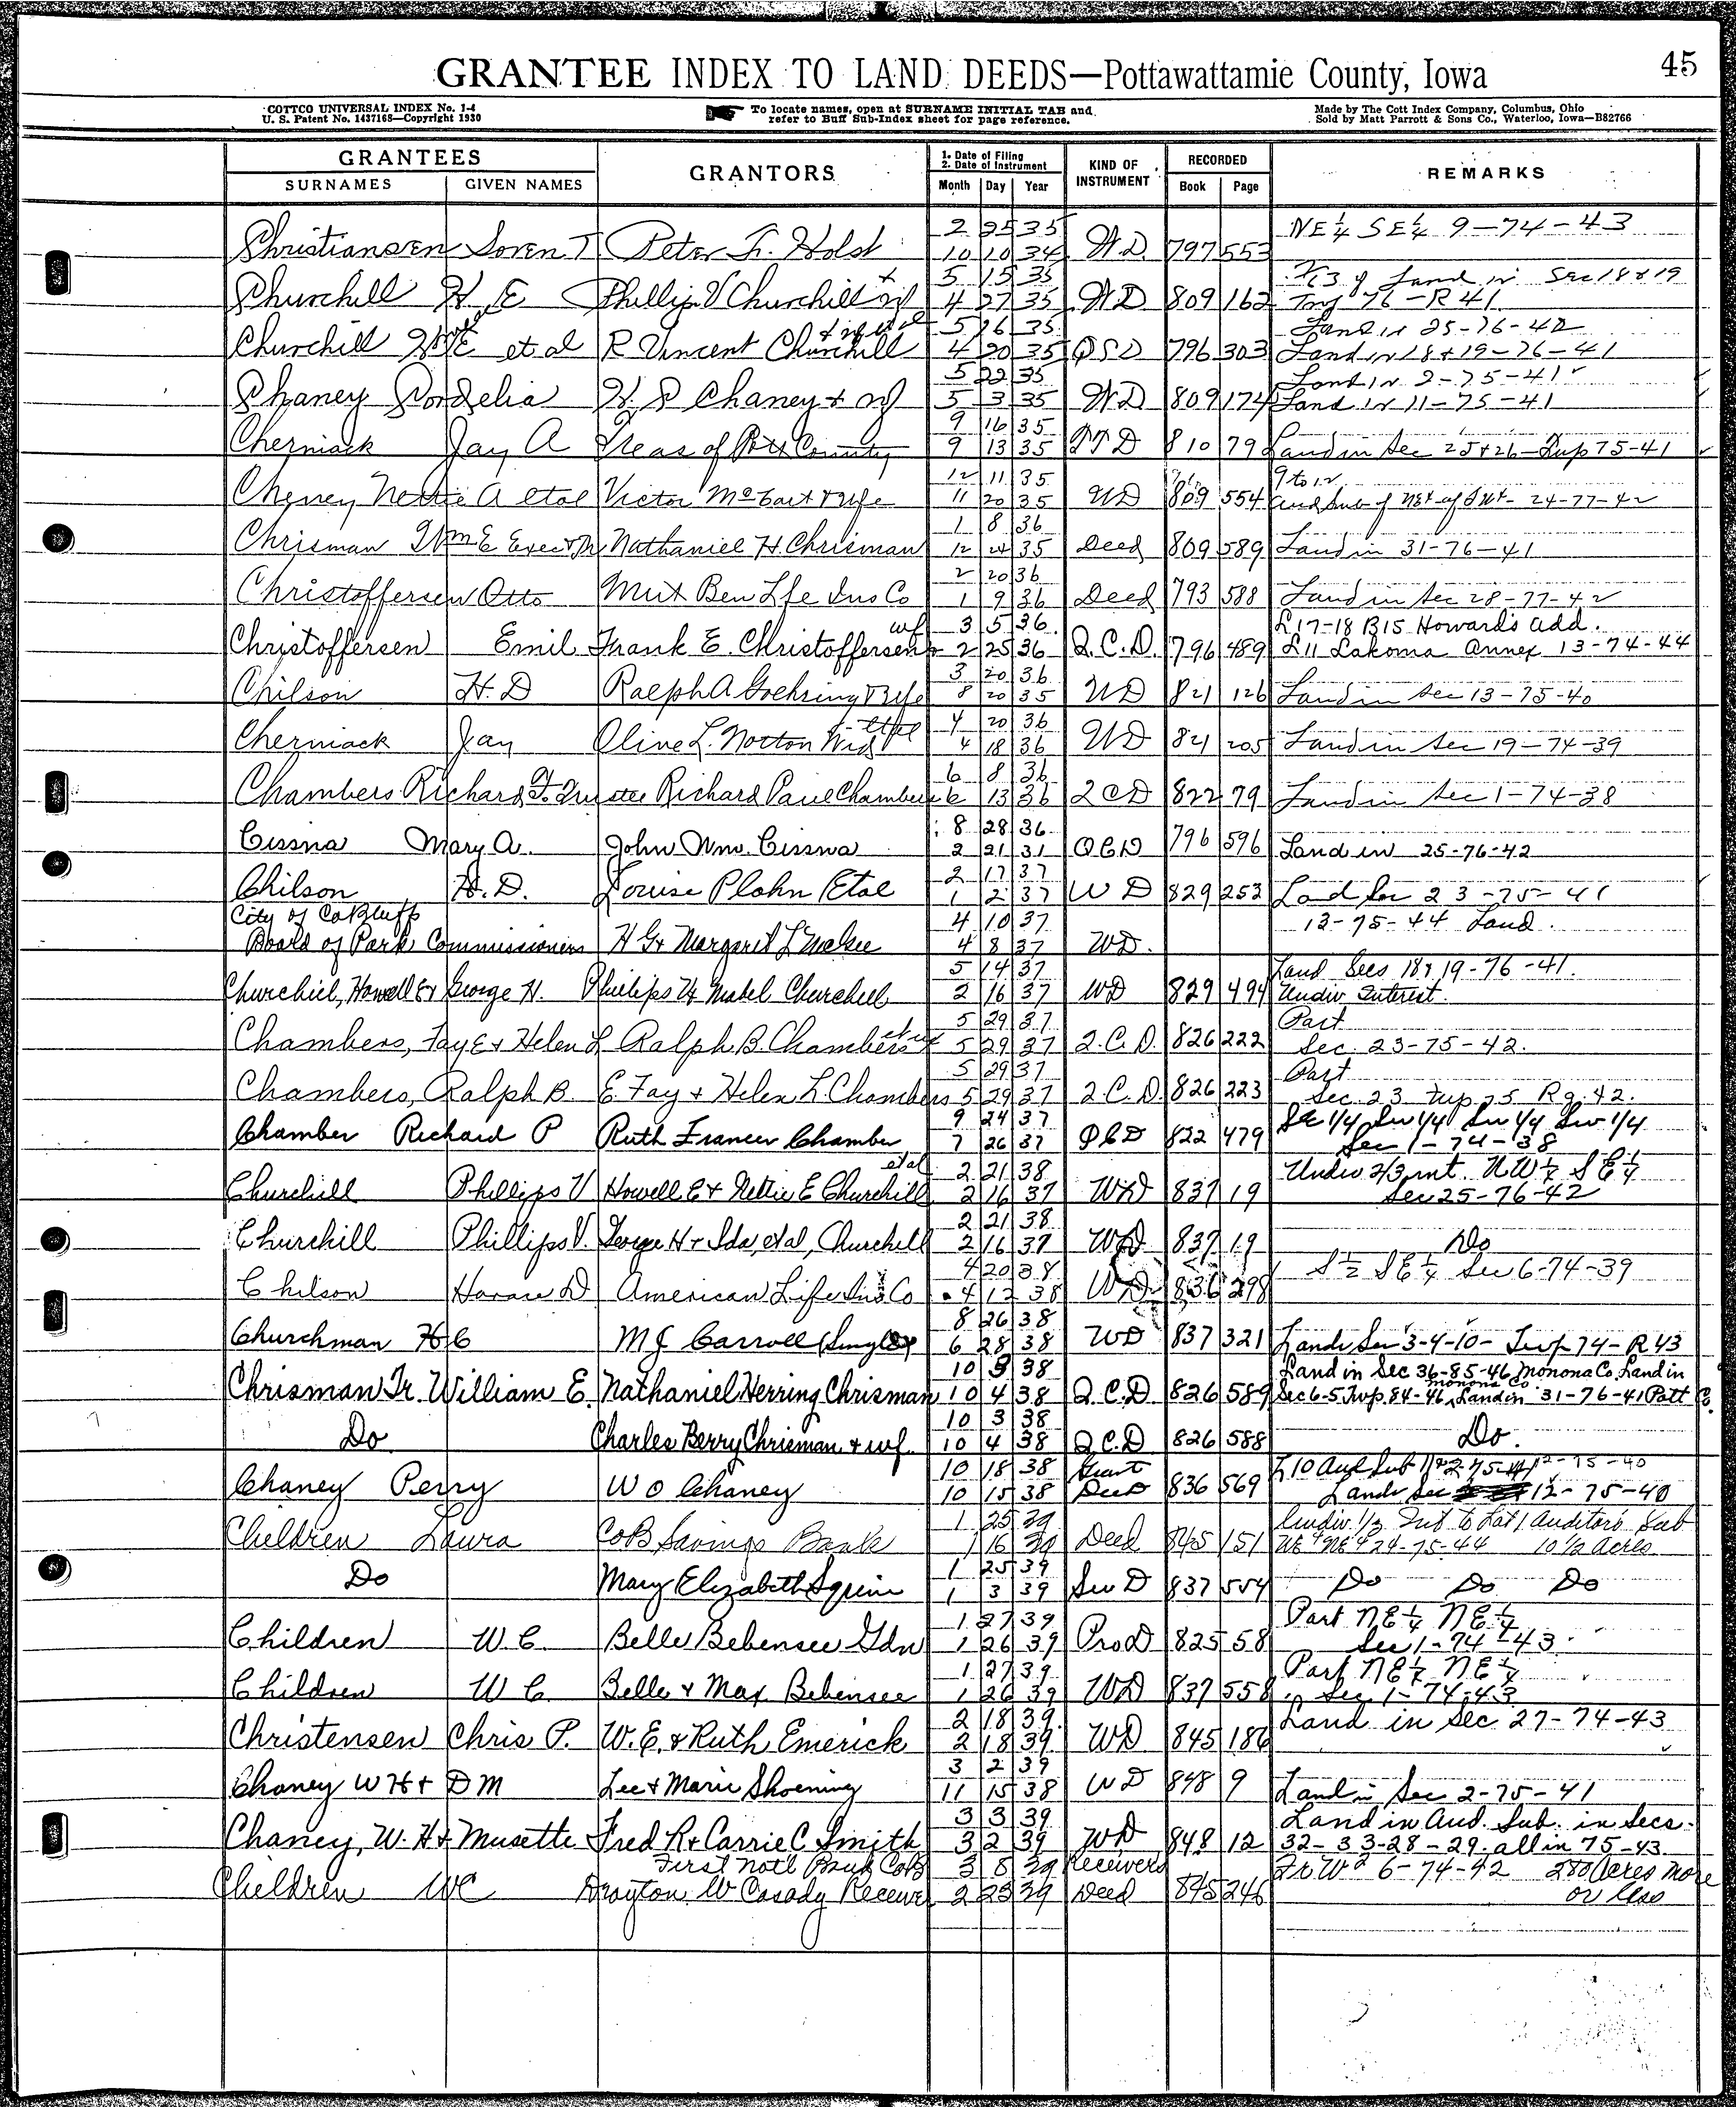 45
GRANTEE INDEX TO LAND DEEDS—Pottawattamie County, Iowa
COTTCO UNIVERSAL INDEX No. 1-4
U. S. Patent No. 1437168—Copyright 1930
To locate names, open at SURNAME INITIAL TAB and
refer to Buff Sub-Index sheet for page reference.
Made by The Cott Index Company, Columbus, Ohio
Sold by Matt Parrott & Sons Co., Waterloo, Iowa—B82766
GRANTEES GRANTORS 1. Date of Filing 2. Date of Instrument KIND OF INSTRUMENT RECORDED REMARKS
SURNAMES GIVEN NAMES Month Day Year Book Page
2 25 35 NE 1/4 SE 1/4 9-74-43
Christiansen Soren T Peter F. Holst 10 10 34 W D. 797 553
5 15 35 1/3 of Land in Sec 18 & 19
Churchill H E Phillip V Churchill + wf 4 27 35 W D 809 162 Twp 76-R 41
5 16 35 Land in 25-76-42
Churchill et al R Vincent Churchill 4 20 35 796 303 Land in 18 + 19-76-41
5 22 35 Land in 2-75-41
Chaney Cordelia H. S Chaney + wf 5 3 35 W D 809 174 Land in 11-75-41
9 16 35
Cherniack Jay A Treas of Pott County 9 13 35 T D 810 79 Land in Sec 25+26-Twp 75-41
12 11 35 9 to 12
Cheney Nettie A etal Victor & wife 11 20 35 WD 809 554 Aud Sub of 24-77-42
1 8 36
Chrisman Wm E Exec & Tr Nathaniel H. Chrisman 12 24 35 Deed 809 589 Land in 31-76-41
2 20 36
Christoffersen Otto Mut Ben Life Ins Co 1 9 36 Deed 793 588 Land in Sec 28-77-42
wf 3 5 36 L 17-18 B15 Howard's add.
Christoffersen Emil Frank E. Christoffersen & 2 25 36 Q.C.D. 796 489 L 11 Lakoma Annex 13-74-44
3 20 36
Chilson H. D Ralph A Goehring & Wife 8 20 35 WD 821 126 Land in Sec 13-75-40
etal 4 20 36
Cherniack Jay Olive L. Norton Wid 4 18 36 WD 821 205 Land in Sec 19-74-39
6 8 36
Chambers Richard F. Trustee Richard Paul Chambers 6 13 36 QCD 822 79 Land in Sec 1-74-38
8 28 36
Cissna Mary A. John Wm. Cissna 2 21 31 QCD 796 596 Land in 25-76-42
2 17 37
Chilson H. D. Louise Plahn Etal 1 2 37 W D 829 253 Land Sec 23-75-41
City of Co Bluff 4 10 37 13-75-44 Land.
Board of Park Commissioners H G & Margaret L McGee 4 8 37 WD.
5 14 37 Land Secs 18 & 19-76-41.
Churchill, Howell E & George H. Phillips V & Mabel Churchill 2 16 37 WD 829 494 Undiv Interest.
5 29 37 Part
Chambers, Fay E + Helen L Ralph B. Chambers et ux 5 29 37 Q.C.D. 826 222 Sec. 23-75-42.
5 29 37 Part
Chambers, Ralph B. E. Fay + Helen L Chambers 5 29 37 Q.C.D. 826 223 Sec. 23 Twp 75 Rg. 42.
9 24 37 SE 1/4 SW 1/4 SW 1/4 SW 1/4
Chamber Richard P Ruth Frances Chamber 7 26 37 QCD 822 479 Sec 1-74-38
etal 2 21 38 Undiv 2/3 int. NW 1/4 SE 1/4
Churchill Phillips V Howell E + Nettie E Churchill 2 16 37 WD 837 19 Sec 25-76-42
2 21 38
Churchill Phillips V. George H + Ida, etal, Churchill 2 16 37 WD 837 19 Do
4 20 38 S 1/2 SE 1/4 Sec 6-74-39
Chilson Horace D American Life Ins Co 4 12 38 WD 836 298
8 26 38
Churchman H C M J Carroll (Single) 6 28 38 WD 837 321 Lands Sec 3-4-10- Twp 74-R43
10 3 38 Land in Sec 36-85-46 Monona Co, Land in
Chrisman Jr. William E. Nathaniel Herring Chrisman 10 4 38 Q.C.D 826 589 Sec 6-5 Twp. 84-46 Monona Co Land in 31-76-41 Pott Co.
10 3 38
Do Charles Berry Chrisman + wf. 10 4 38 Q.C.D 826 588 Do.
10 18 38 L 10 Aud Sub 12-75-40
Chaney Perry W O Chaney 10 15 38 Deed 836 569 Lands Sec 12-75-40
1 25 39 Undiv 1/3 Int to Lot 1 Auditors Sub
Children Laura CoB Savings Bank 1 16 39 Deed 845 151 24-75-44 10 1/2 Acres
1 25 39
Do Mary Elizabeth Squire 1 3 39 837 554 Do Do Do
1 27 39 Part NE 1/4 NE 1/4
Children W. C. Belle Bebensee Gdn 1 26 39 Pro D 825 58 Sec 1-74-43
1 27 39 Part NE 1/4 NE 1/4
Children W C. Belle + Max Bebensee 1 26 39 WD 837 558 Sec 1-74-43
2 18 39 Land in Sec 27-74-43
Christensen Chris P. W. E. & Ruth Emerick 2 18 39 WD 845 186
3 2 39
Chaney W H + D M Lee + Marie Shoening 11 15 38 WD 848 9 Land in Sec 2-75-41
3 3 39 Land in Aud. Sub. in Secs.
Chaney, W. H & Musette Fred R & Carrie C Smith 3 2 39 WD 848 12 32-33-28-29. all in 75-43.
First Nat'l Bank CoB 3 8 39 Receivers 6-74-42 280 Acres more
Children WC Drayton W Casady Receiver 2 23 39 Deed 845 246 or less